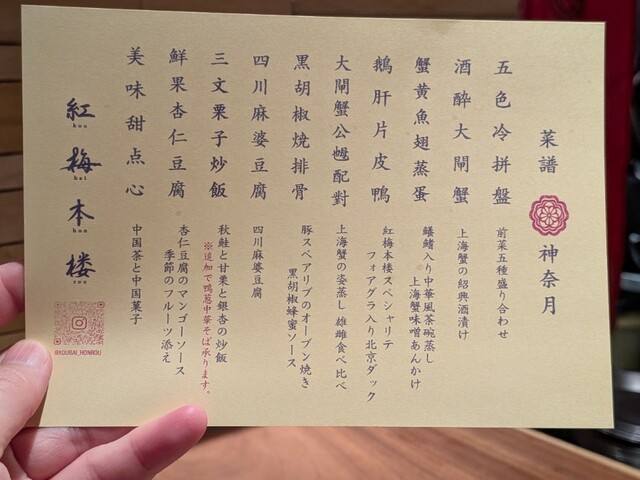 菜譜 神奈月
五色冷拼盤 前菜五種盛り合わせ
酒醉大閘蟹 上海蟹の紹興酒漬け
蟹黄魚翅蒸蛋 鱶鰭入り中華風茶碗蒸し
上海蟹味噌あんかけ
鵝肝片皮鴨 紅梅本楼スペシャリテ
フォアグラ入り北京ダック
大閘蟹公乸配對 上海蟹の姿蒸し 雄雌食べ比べ
黒胡椒焼排骨 豚スペアリブのオーブン焼き
黒胡椒蜂蜜ソース
四川麻婆豆腐 四川麻婆豆腐
三文栗子炒飯 秋鮭と甘栗と銀杏の炒飯
※追加で鴨葱中華そば承ります。
鮮果杏仁豆腐 杏仁豆腐のマンゴーソース
季節のフルーツ添え
美味甜点心 中国茶と中国菓子
紅梅本楼
kou bai hon rou
@KOUBAI_HONROU